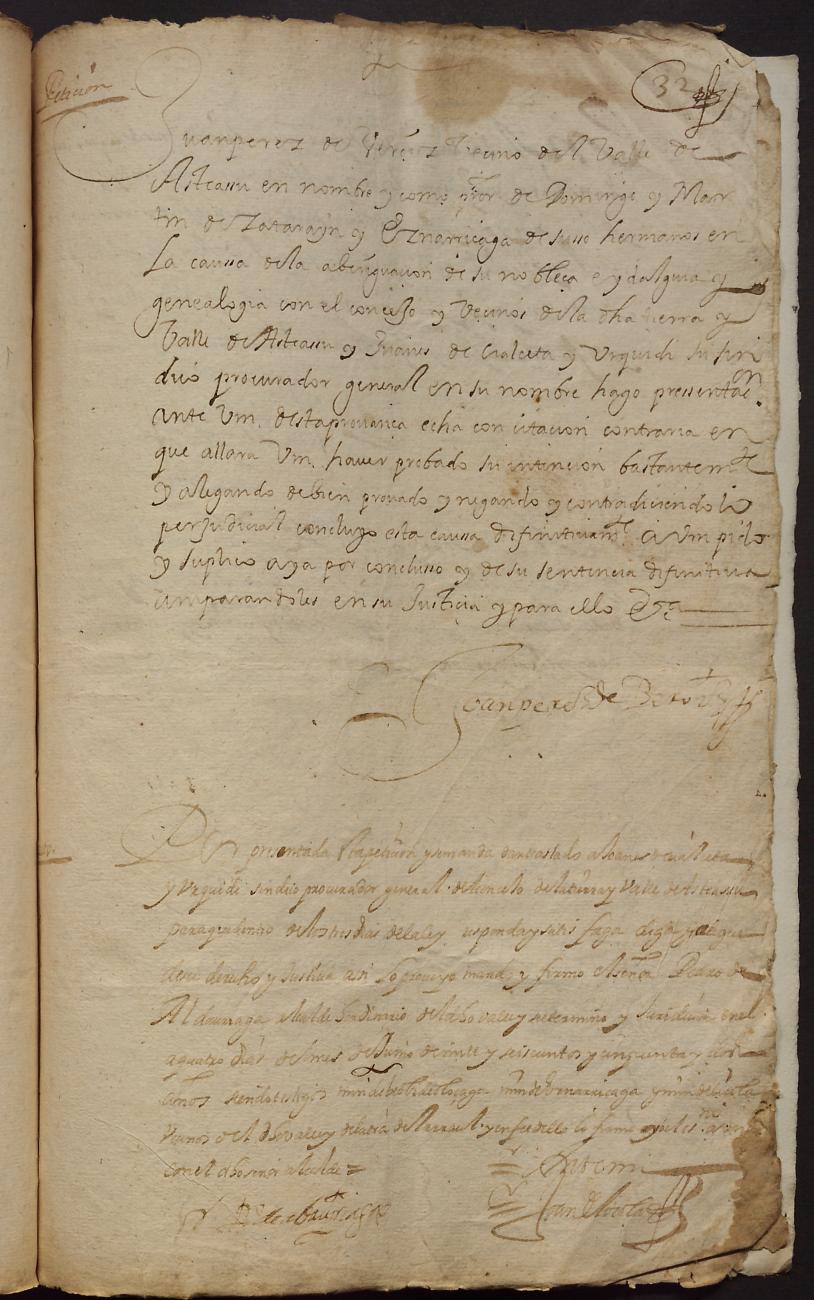 Petición
32
Juanperez de vecino del Valle de
Asteasu en nombre y como pror de Domingo y Mar
tin de Zatarayn y Eznarriçaga de suso hermanos en
La caussa de la aberiguacion de su nobleça e ydalguia y
genealogia con el concejo y Vecinos de la dha tierra y
Valle de Asteasu y Juanes de Çialçeta y Urquidi su sin
dico procurador general en su nombre hago pressentaon
ante Vm. desta provança echa con citacion contraria en
que allara Vm. haver probado su intincion bastantemte
y alegando de bien provado y negando y contradiciendo lo
perjudicial concluyo esta caussa difinitivamte a Vm pido
y suplico aya por conclusso y de su sentencia difinitiva
amparandoles en su Justicia y para ello &a
Joanperez de
presentada esta petiçion y demanda traslado a Joanes de
y Urquidi sindico procurador general del conçejo de la tierra y Valle de Asteasu
para que dentro de los tres dias de la ley responda y satisfaga diga y alegue
de su derecho y Justicia asi lo proveyo mando y firmo el señor Pedro de
Alduarraga alcalde hordinario del dho valle y su termino y Juridicion en el
a quatro dias del mes de Junio de mill y seiscientos y cinquenta y dos
años siendo testigos
Vecinos del dho valle y de la tierra de Larraul y en fee dello lo firme
con el dho señor alcalde =
Ante mi